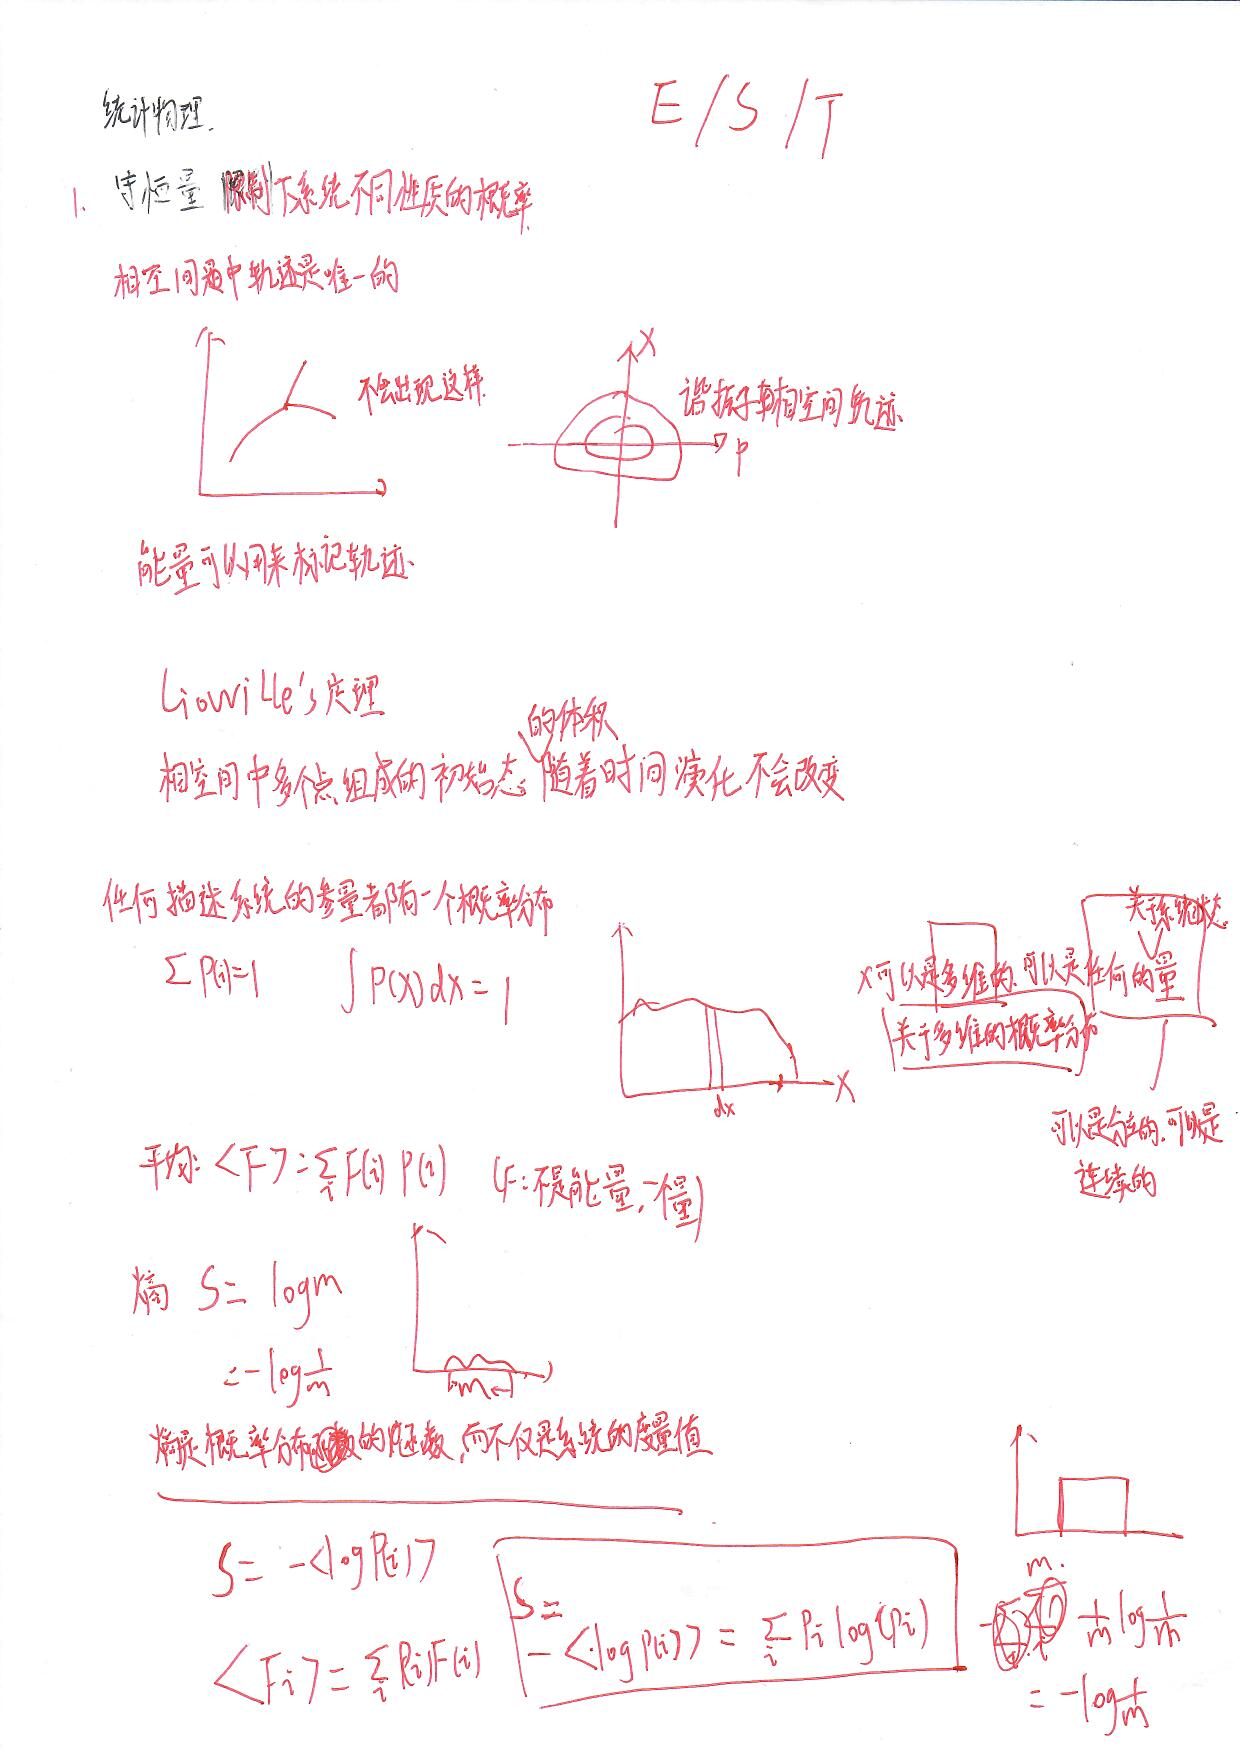 统计物理.
E/S/T
1. 守恒量限制下系统不同性质的概率.
相空间中轨迹是唯一的
不会出现这样.
X
P
谐振子相空间轨迹.
能量可以用来标记轨迹.
Liouville's定理
的体积
相空间中多个点组成的初始态。随着时间演化不会改变
任何描述系统的参量都有一个概率分布
Σ P(i)=1 ∫P(x)dx=1
X
dx
关于系统状态.
x可以是多维的.可以是任何的量
关于多维的概率分布
可以是分立的.可以是
连续的
平均: <F>=Σ_i F(i) P(i) (F:不是能量,一个量)
熵 S= logm
=-log 1/m
m
熵是概率分布函数的泛函数,而不仅是系统的度量值
S= -<logP(i)>
<Fi>=Σ_i P(i)F(i)
S=
-<logP(i)> = Σ_i Pi log(Pi)
m.
1/m log 1/m
= -log 1/m